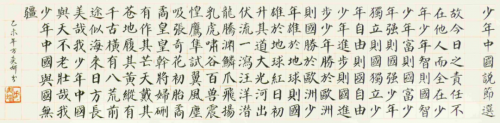 少年中國說節選
故今日之責任不
在他人而全在少
年少年智則國智
少年富則國富少
年强則國强少年
獨立則國獨立少
年自由則國自由
少年進步則國進
步少年勝於歐洲
則國勝於歐洲少
年雄於地球則國
雄於地球紅日初
升其道大光河出
伏流一瀉汪洋潛
龍騰淵鱗爪飛揚
乳虎嘯谷百獸震
惶鷹隼試翼風塵
吸張奇花初胎矞
矞皇皇幹將發硎
有作其芒天戴其
蒼地履其黃縱有
千古橫有八荒前
途似海來日方長
美哉我少年中國
與天不老壯哉我
少年中國與國無
疆